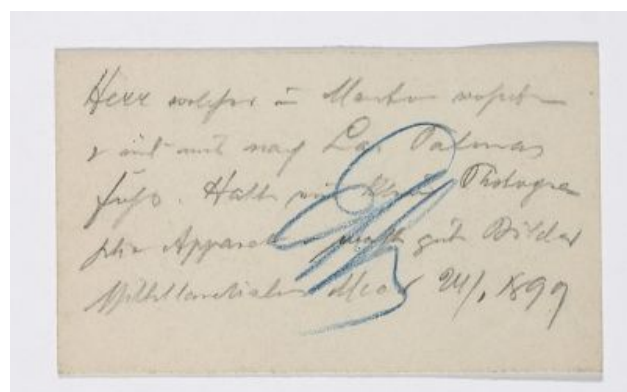 Herr welcher in wohnte
u mit uns nach La Palmas
fuhr. Hatte ein kleinen Photogra
phie Apparat u machte gute Bilder
Mittelländisches Meer 24/1 1899